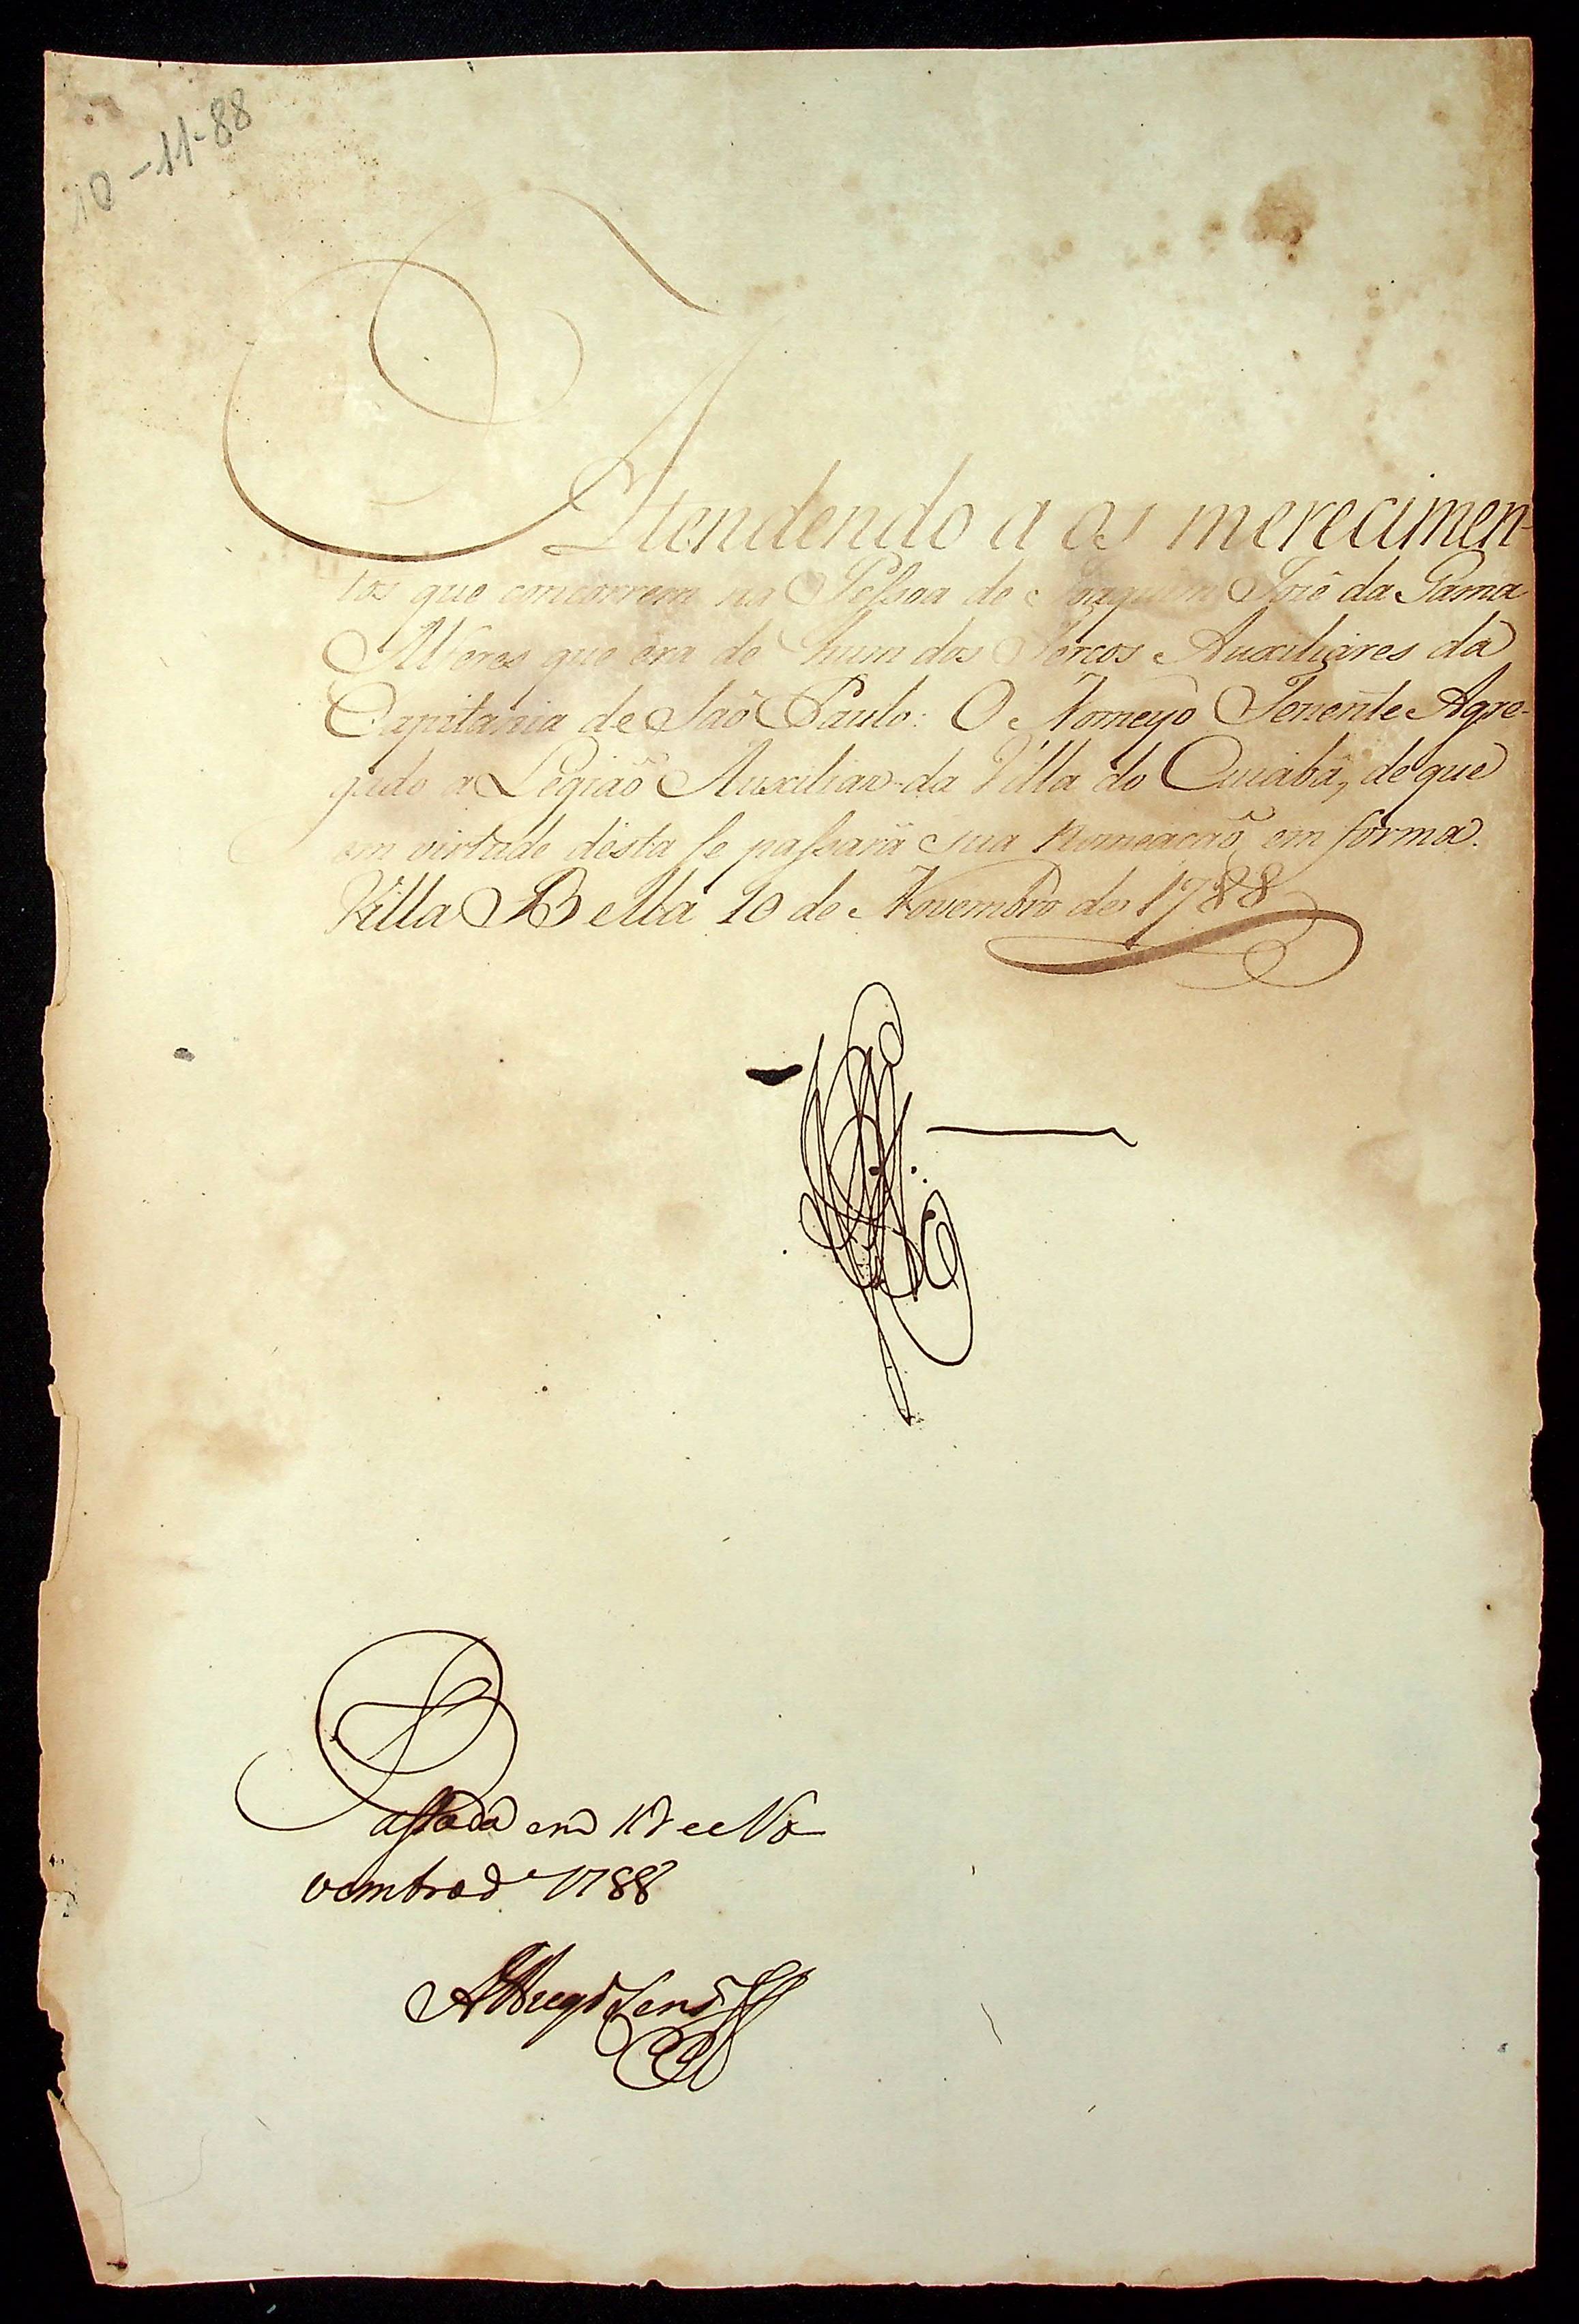 10-11-88
Attendendo a os merecimen-
tos que concorrem na Pessoa de Joaquim Jozê da Gama
Alferes que era de hum dos Terços Auxiliares da
Capitania de Saõ Paulo: O Nomeyo Tenente Agre-
gado a Legiaõ Auxiliar da Villa do Cuiabâ, de que
em virtude desta se passarâ sua nomeaçaõ em forma.
Villa Bella 10 de Novembro de 1788
Passada em de No-
vembro de 1788